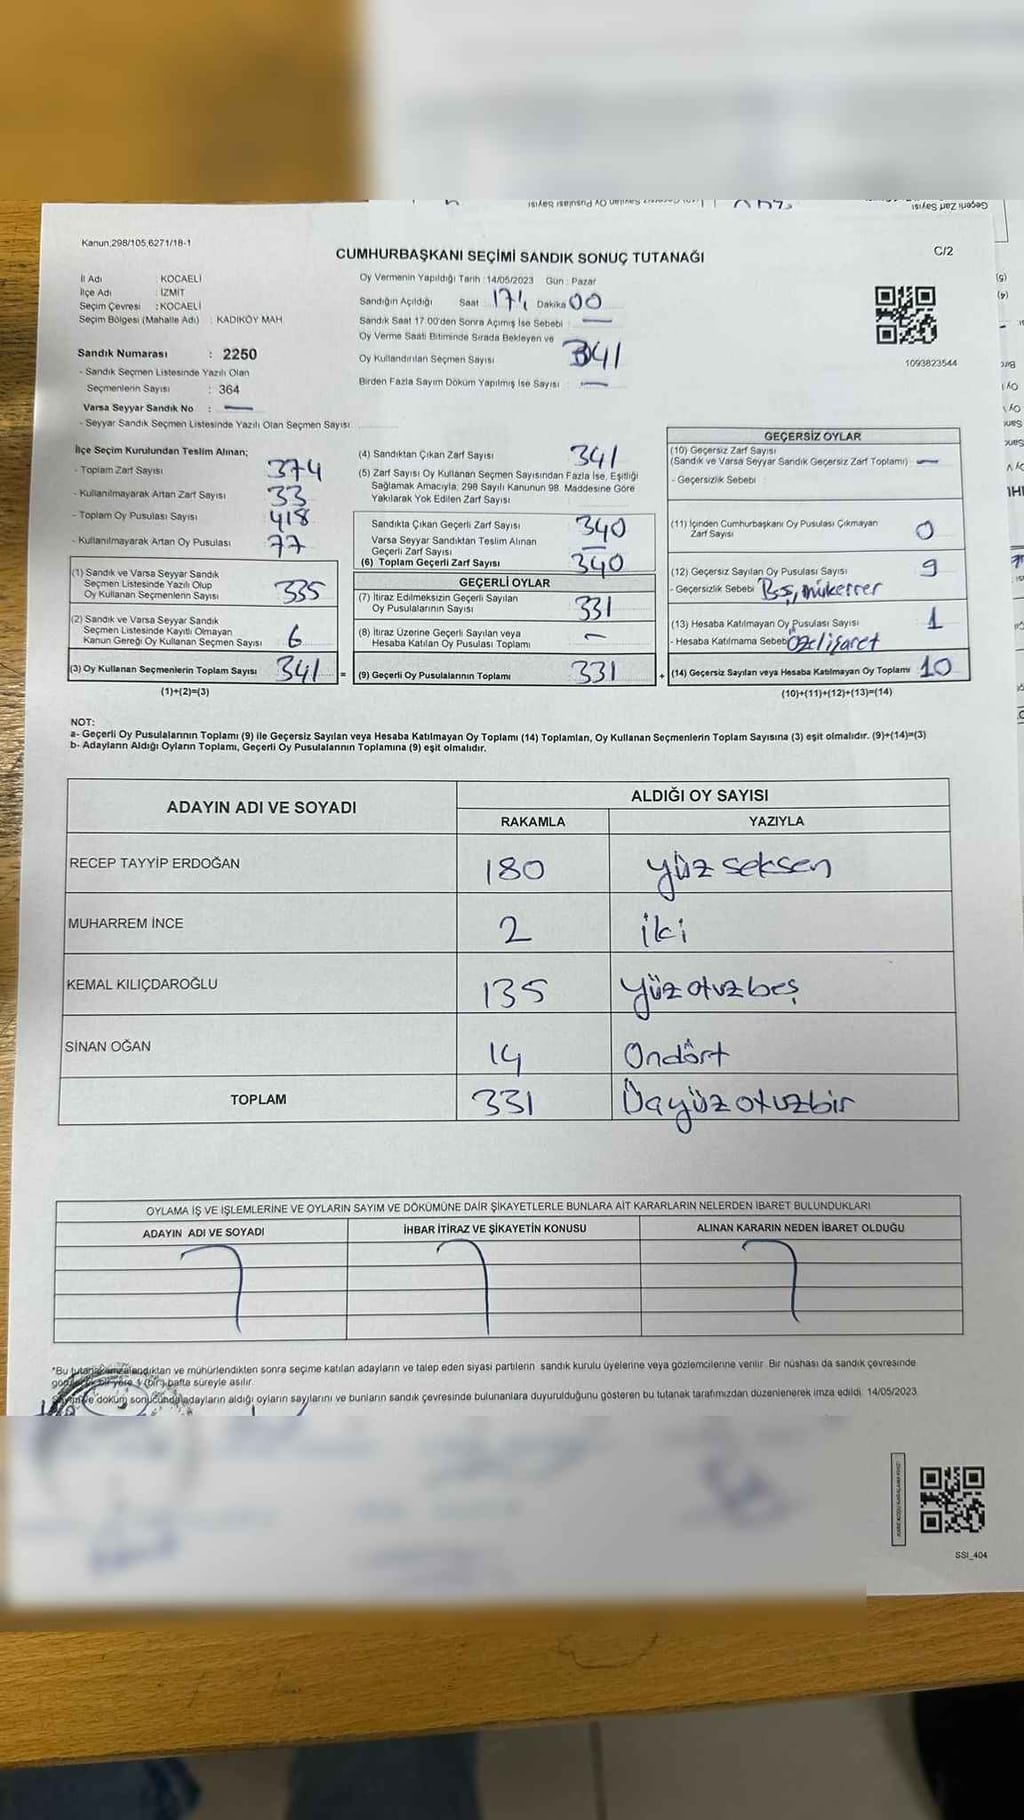 Kanun,298/105,6271/18-1
CUMHURBAŞKANI SEÇİMİ SANDIK SONUÇ TUTANAĞI
C/2
İl Adı : KOCAELİ
İlçe Adı : İZMİT
Seçim Çevresi : KOCAELİ
Seçim Bölgesi (Mahalle Adı) : KADIKÖY MAH.
Sandık Numarası : 2250
- Sandık Seçmen Listesinde Yazılı Olan
Seçmenlerin Sayısı : 364
Varsa Seyyar Sandık No : —
- Seyyar Sandık Seçmen Listesinde Yazılı Olan Seçmen Sayısı:
Oy Vermenin Yapıldığı Tarih :14/05/2023 Gün : Pazar
Sandığın Açıldığı Saat 17 Dakika 00
Sandık Saat 17.00'den Sonra Açımış İse Sebebi : —
Oy Verme Saati Bitiminde Sırada Bekleyen ve
Oy Kullandırılan Seçmen Sayısı 341
Birden Fazla Sayım Döküm Yapılmış İse Sayısı : —
1093823544
İlçe Seçim Kurulundan Teslim Alınan;
- Toplam Zarf Sayısı 374
- Kullanılmayarak Artan Zarf Sayısı 33
- Toplam Oy Pusulası Sayısı 418
- Kullanılmayarak Artan Oy Pusulası 77
(1) Sandık ve Varsa Seyyar Sandık
Seçmen Listesinde Yazılı Olup
Oy Kullanan Seçmenlerin Sayısı 335
(2) Sandık ve Varsa Seyyar Sandık
Seçmen Listesinde Kayıtlı Olmayan
Kanun Gereği Oy Kullanan Seçmen Sayısı 6
(3) Oy Kullanan Seçmenlerin Toplam Sayısı 341 =
(1)+(2)=(3)
(4) Sandıktan Çıkan Zarf Sayısı 341
(5) Zarf Sayısı Oy Kullanan Seçmen Sayısından Fazla İse, Eşitliği
Sağlamak Amacıyla; 298 Sayılı Kanunun 98. Maddesine Göre
Yakılarak Yok Edilen Zarf Sayısı
Sandıkta Çıkan Geçerli Zarf Sayısı 340
Varsa Seyyar Sandıktan Teslim Alınan
Geçerli Zarf Sayısı —
(6) Toplam Geçerli Zarf Sayısı 340
GEÇERLİ OYLAR
(7) İtiraz Edilmeksizin Geçerli Sayılan
Oy Pusulalarının Sayısı 331
(8) İtiraz Üzerine Geçerli Sayılan veya
Hesaba Katılan Oy Pusulası Toplamı —
(9) Geçerli Oy Pusulalarının Toplamı 331 +
GEÇERSİZ OYLAR
(10) Geçersiz Zarf Sayısı
(Sandık ve Varsa Seyyar Sandık Geçersiz Zarf Toplamı) —
- Geçersizlik Sebebi :
(11) İçinden Cumhurbaşkanı Oy Pusulası Çıkmayan
Zarf Sayısı 0
(12) Geçersiz Sayılan Oy Pusulası Sayısı 9
- Geçersizlik Sebebi Boş, mükerrer
(13) Hesaba Katılmayan Oy Pusulası Sayısı 1
- Hesaba Katılmama Sebebi özel işaret
(14) Geçersiz Sayılan veya Hesaba Katılmayan Oy Toplamı 10
(10)+(11)+(12)+(13)=(14)
NOT:
a- Geçerli Oy Pusulalarının Toplamı (9) ile Geçersiz Sayılan veya Hesaba Katılmayan Oy Toplamı (14) Toplamları, Oy Kullanan Seçmenlerin Toplam Sayısına (3) eşit olmalıdır. (9)+(14)=(3)
b- Adayların Aldığı Oyların Toplamı, Geçerli Oy Pusulalarının Toplamına (9) eşit olmalıdır.
ADAYIN ADI VE SOYADI
ALDIĞI OY SAYISI
RAKAMLA YAZIYLA
RECEP TAYYİP ERDOĞAN 180 yüz seksen
MUHARREM İNCE 2 iki
KEMAL KILIÇDAROĞLU 135 yüz otuz beş
SİNAN OĞAN 14 Ondört
TOPLAM 331 Üçyüz otuzbir
OYLAMA İŞ VE İŞLEMLERİNE VE OYLARIN SAYIM VE DÖKÜMÜNE DAİR ŞİKAYETLERLE BUNLARA AİT KARARLARIN NELERDEN İBARET BULUNDUKLARI
ADAYIN ADI VE SOYADI İHBAR İTİRAZ VE ŞİKAYETİN KONUSU ALINAN KARARIN NEDEN İBARET OLDUĞU
*Bu tutanak imzalandıktan ve mühürlendikten sonra seçime katılan adayların ve talep eden siyasi partilerin sandık kurulu üyelerine veya gözlemcilerine verilir. Bir nüshası da sandık çevresinde
bir yere 1 (bir) hafta süreyle asılır.
ve döküm sonucunda adayların aldığı oyların sayılarını ve bunların sandık çevresinde bulunanlara duyurulduğunu gösteren bu tutanak tarafımızdan düzenlenerek imza edildi. 14/05/2023
SSI_404